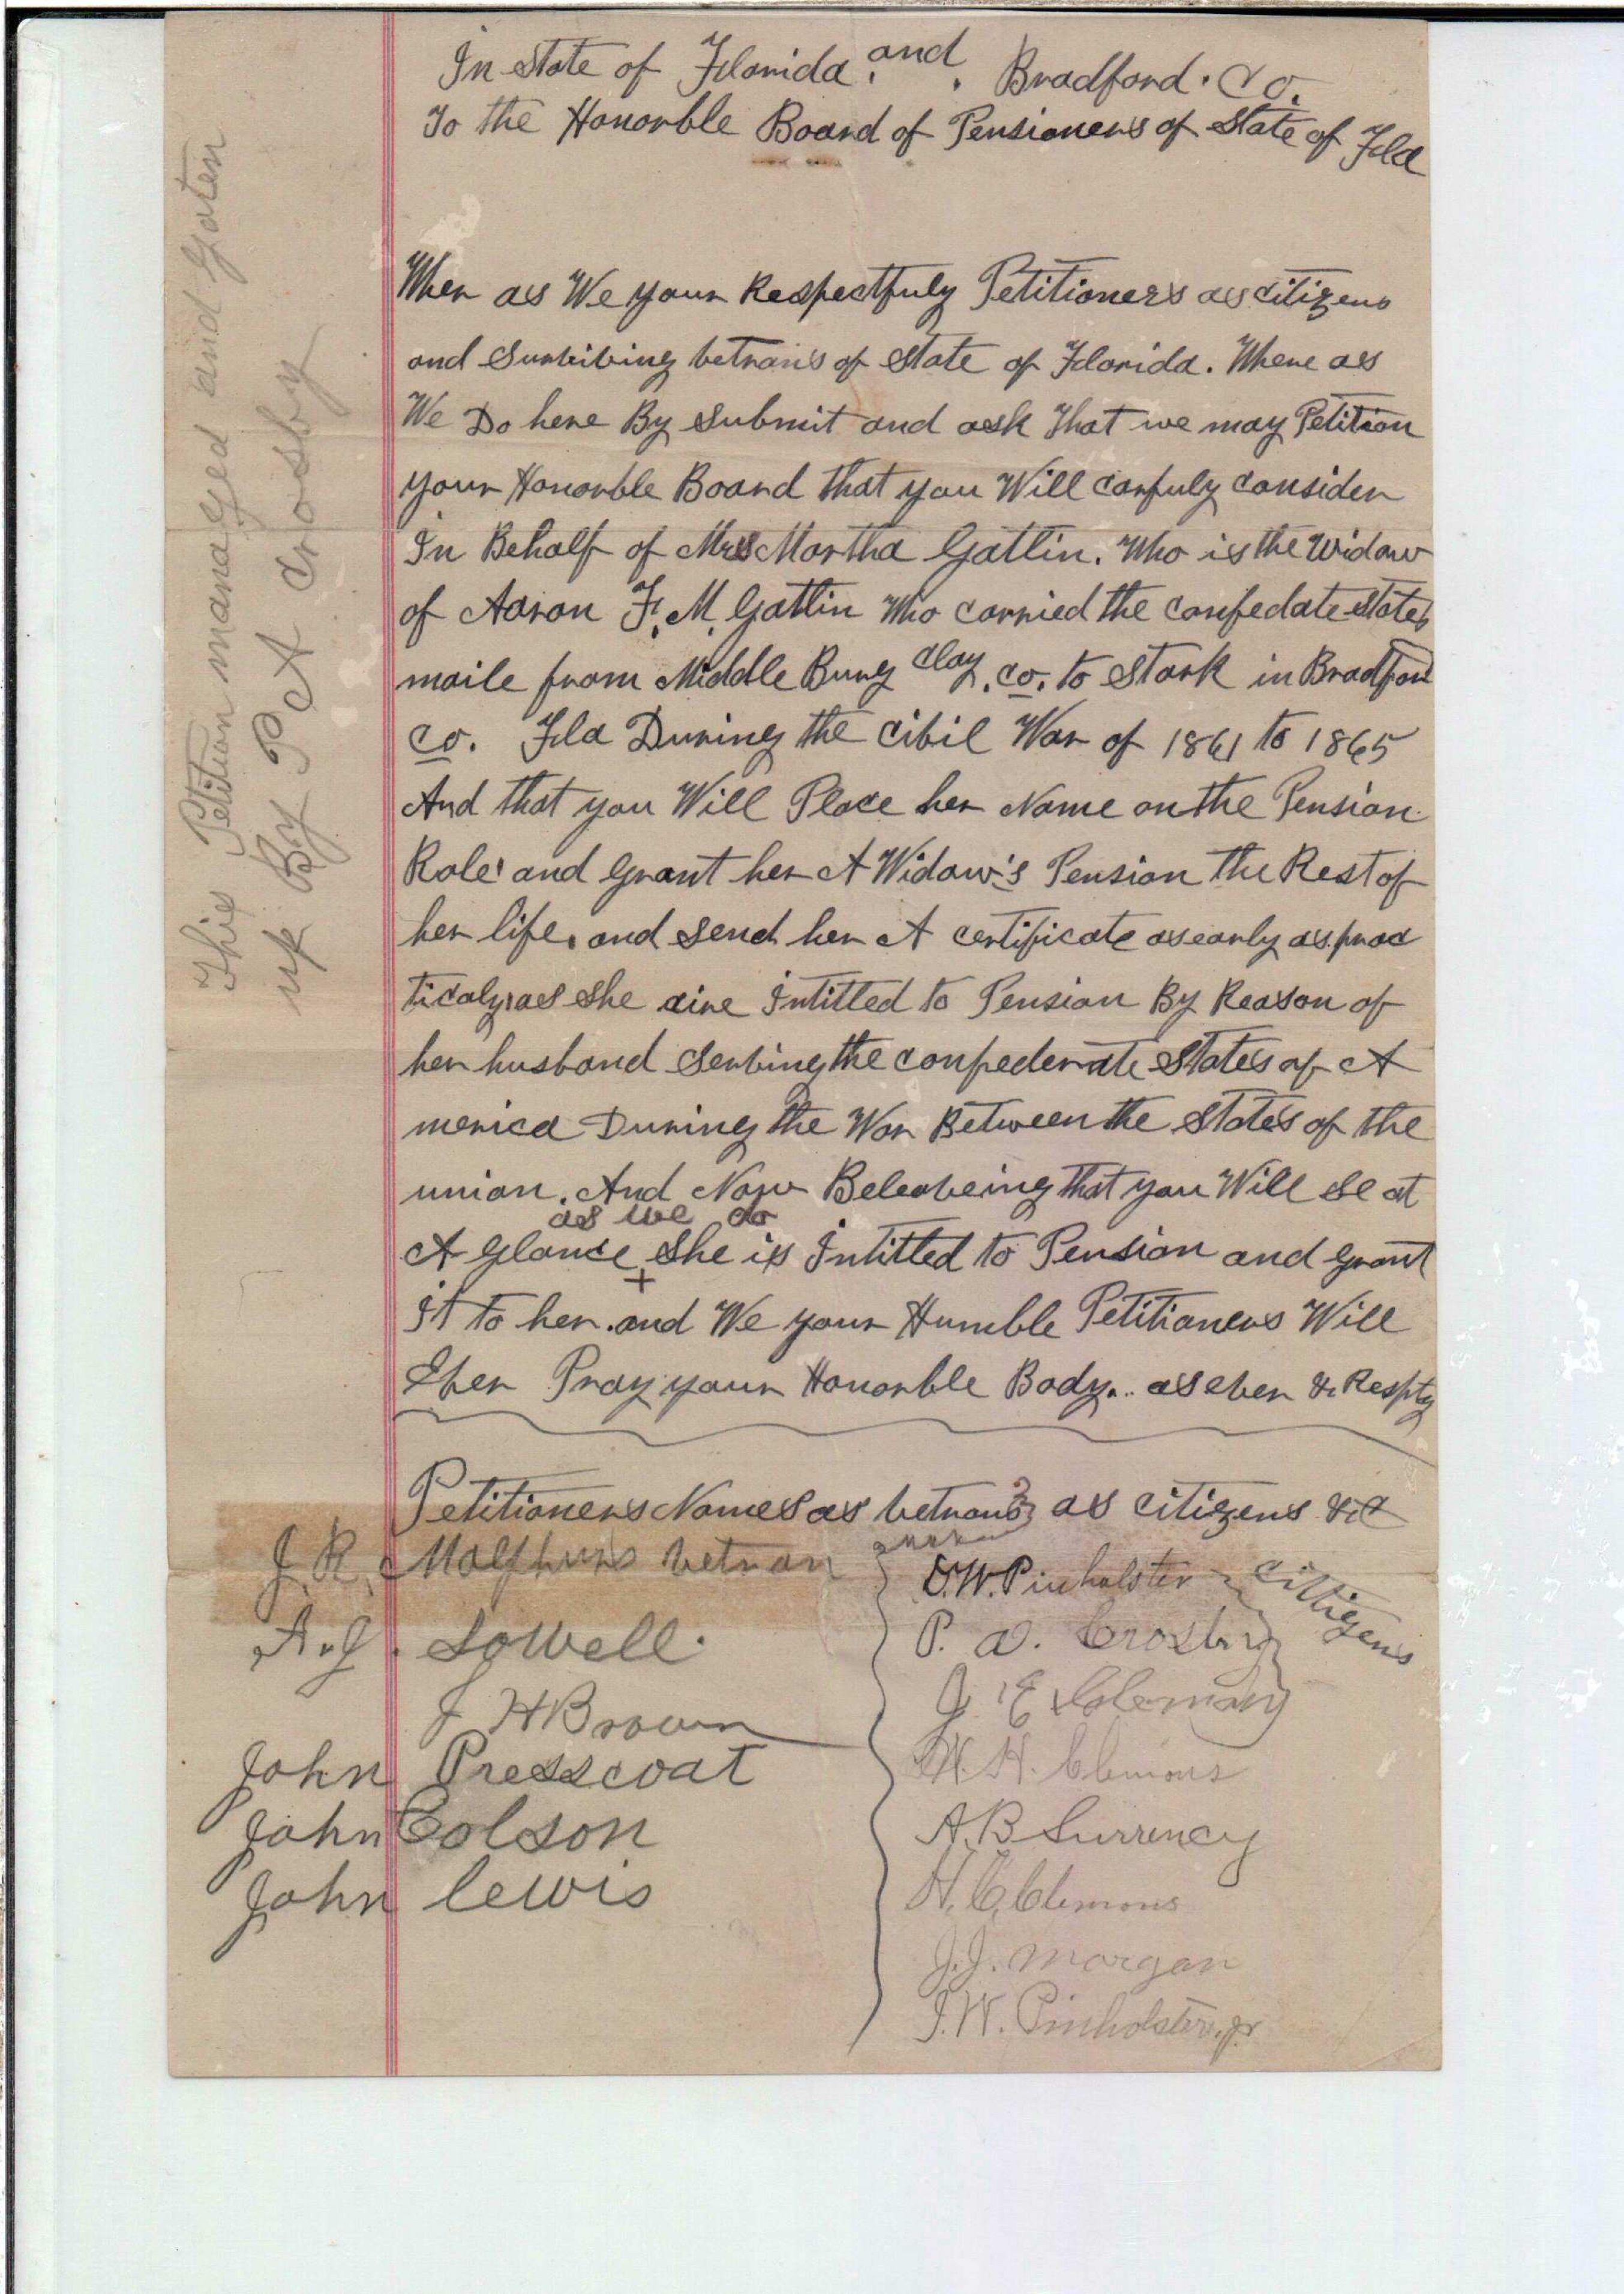 In State of Florida. and . Bradford. Co.
To the Honorble Board of Pensioners of State of Fla
When as We your Respectfuly Petitioners as citizens
and Surbibing betrans of State of Florida. Where as
We Do here By Submit and ask That we may Petition
your Honorble Board that you Will carfuly consider
In Behalf of Mrs Martha Gattin. Who is the Widow
of Aaron F. M. Gattin Who carried the confedate States
maile from Middle Burg Clay. co. to Stark in Bradford
co. Fla During the cibil War of 1861 to 1865
And that you Will Place her Name on the Pension
Role and grant her A Widow's Pension the Rest of
her life. and send her A certificate as early as prac
ticaly as She aire Intitled to Pension By Reason of
her husband Serbing the confederate States of A
merica During the War Between the States of the
union. And Now Beleabeing that you Will se at
as we do
A glance + She is Intitled to Pension and grant
it to her. and We your Humble Petitioners Will
Eber Pray your Honorble Body.. as eber & Respty
Petitioners Names as betrans as citizens &c
J. R. Malphurs betran
A. J. Sowell.
J H Brown
John Presscoat
John Colson
John lewis
D. W. Pinholster
cittizens
P. A. Crosby
J. E Coleman
W. H. Clemons
A. B Surrency
H. C. Clemons
J. J. Morgan
J. W. Pinholster. Jr
This Petition managed and Goten
up By P A Crosby